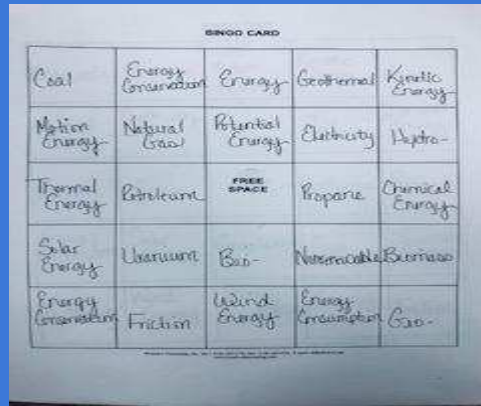 BINGO CARD
Coal
Energy
Conservation
Energy
Geothermal
Kinetic
Energy
Motion
Energy
Natural
Gas
Potential
Energy
Electricity
Hydro-
Thermal
Energy
Petroleum
FREE
SPACE
Propane
Chemical
Energy
Solar
Energy
Uranium
Bio-
Nonrenewable
Biomass
Energy
Conservation
Friction
Wind
Energy
Energy
Consumption
Geo-